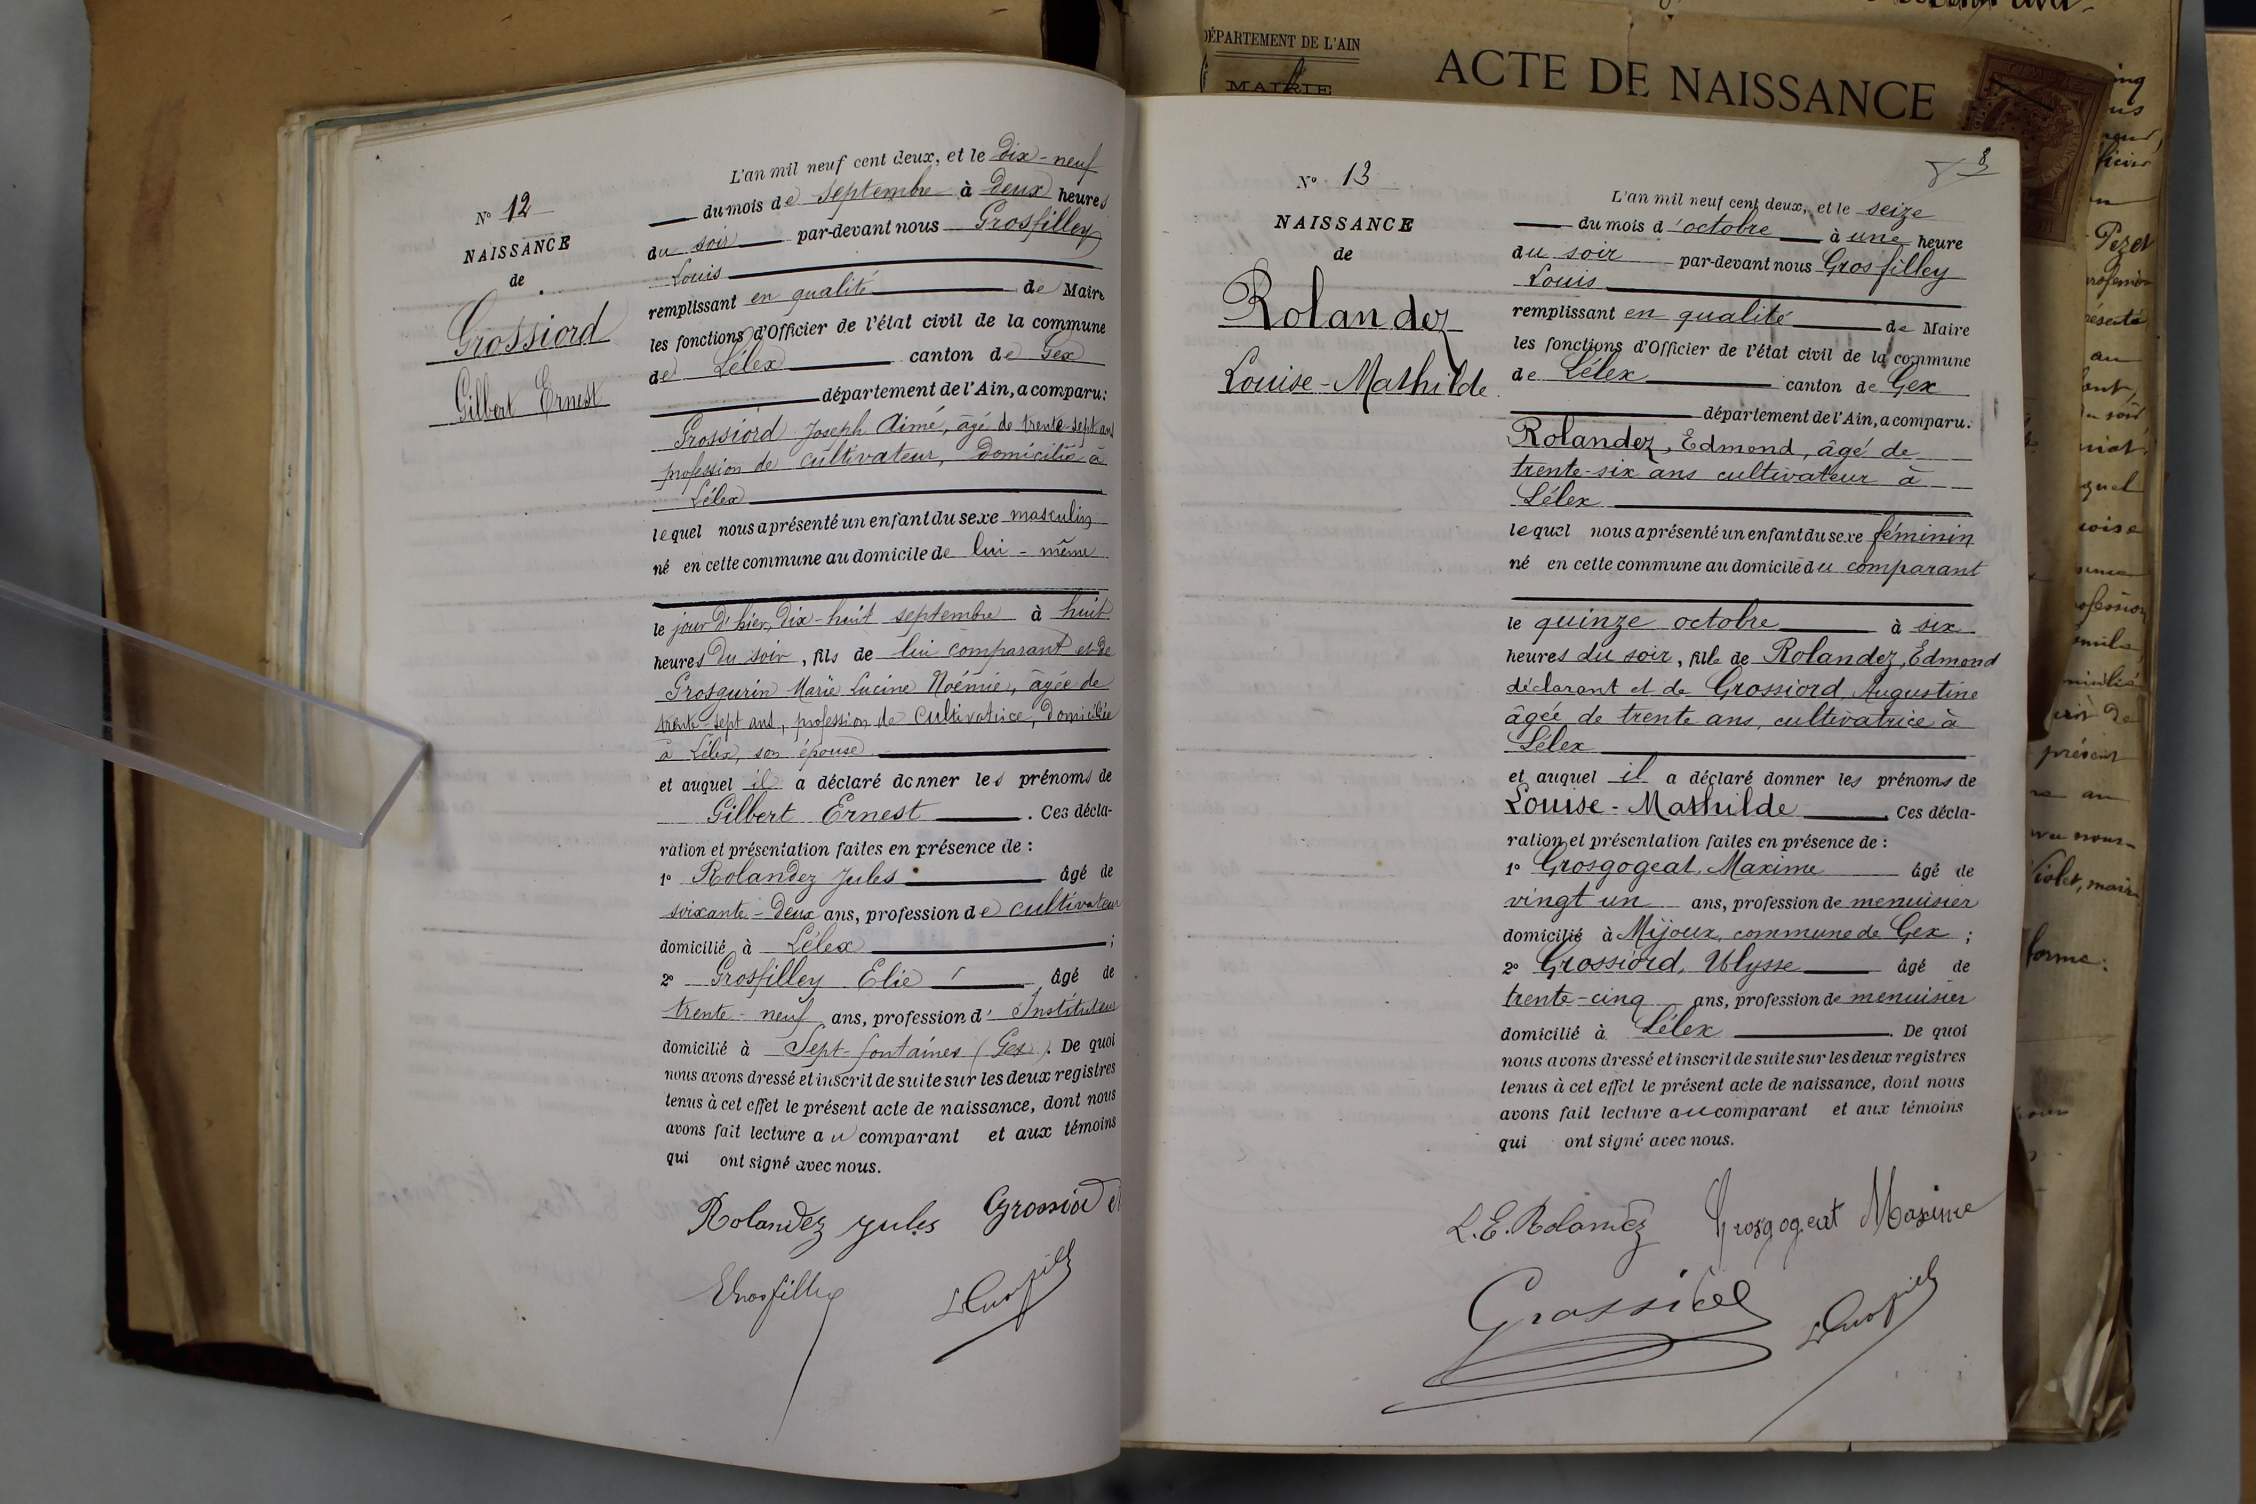 L'an mil neuf cent deux, et le dix-neuf
du mois de septembre à deux heures
du soir par-devant nous Grosfilley
Louis
remplissant en qualité de Maire
les fonctions d'Officier de l'état civil de la commune
de Lélex canton de Gex
département de l'Ain, a comparu:
Grossiord Joseph Aimé, âgé de trente-sept ans
profession de cultivateur, domicilié à
Lélex
lequel nous a présenté un enfant du sexe masculin
né en cette commune au domicile de lui-même
le jour d'hier, dix-huit septembre à huit
heures du soir, fils de lui comparant et de
Grosgurin Marie Lucine Noémie, âgée de
trente-sept ans, profession de cultivatrice, domiciliée
à Lélex, son épouse
et auquel il a déclaré donner les prénoms de
Gilbert Ernest . Ces décla-
ration et présentation faites en présence de :
1° Rolandez Jules âgé de
soixante-deux ans, profession de cultivateur
domicilié à Lélex ;
2° Grosfilley Elie âgé de
trente-neuf ans, profession d'Instituteur
domicilié à Sept-fontaines (Gex). De quoi
nous avons dressé et inscrit de suite sur les deux registres
tenus à cet effet le présent acte de naissance, dont nous
avons fait lecture au comparant et aux témoins
qui ont signé avec nous.
Rolandez Jules Grossiord
N° 12
NAISSANCE
de
Grossiord
Gilbert Ernest
DÉPARTEMENT DE L'AIN
MAIRIE
ACTE DE NAISSANCE
8
N° 13
NAISSANCE
de
Rolandez
Louise-Mathilde
L'an mil neuf cent deux, et le seize
du mois d'octobre à une heure
du soir par-devant nous Grosfilley
Louis
remplissant en qualité de Maire
les fonctions d'Officier de l'état civil de la commune
de Lélex canton de Gex
département de l'Ain, a comparu:
Rolandez, Edmond, âgé de
trente-six ans cultivateur à
Lélex
lequel nous a présenté un enfant du sexe féminin
né en cette commune au domicile du comparant
le quinze octobre à six
heures du soir, fille de Rolandez, Edmond
déclarant et de Grossiord Augustine
âgée de trente ans, cultivatrice à
Lélex
et auquel il a déclaré donner les prénoms de
Louise-Mathilde . Ces décla-
ration et présentation faites en présence de :
1° Grosgogeat Maxime âgé de
vingt un ans, profession de menuisier
domicilié à Mijoux, commune de Gex ;
2° Grossiord, Ulysse âgé de
trente-cinq ans, profession de menuisier
domicilié à Lélex . De quoi
nous avons dressé et inscrit de suite sur les deux registres
tenus à cet effet le présent acte de naissance, dont nous
avons fait lecture au comparant et aux témoins
qui ont signé avec nous.
L. E. Rolandez Grosgogeat Maxime
Grossiord